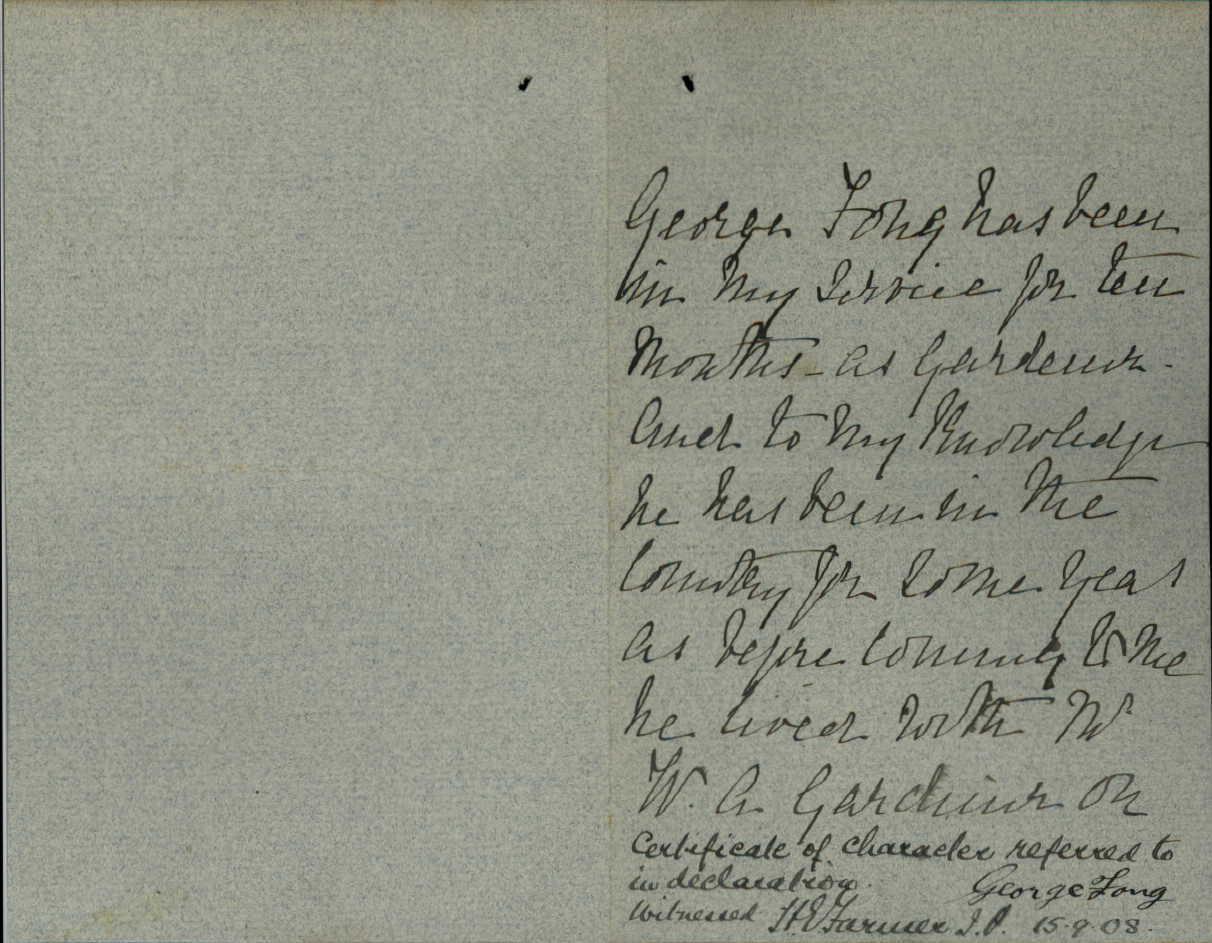 George Fong has been
in my service for ten
months - as gardener -
and to my knowledge
he has been in the
Country for some years
as before coming to me
he lived with Mr
W. A. Gardiner on
Certificate of Character referred to
in declaration. George Fong
Witnessed H E Farmer J.P. 15.9.08.